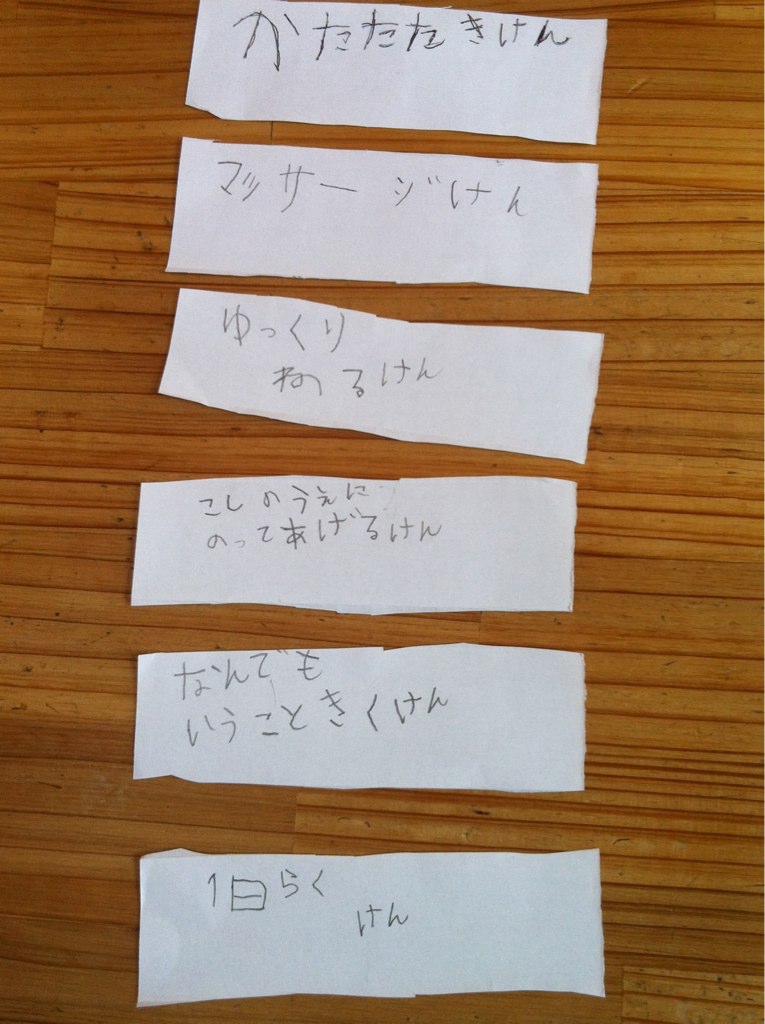 かたたたきけん
マッサージけん
ゆっくり
ねるけん
こしのうえに
のってあげるけん
なんでも
いうこときくけん
1日らく
けん